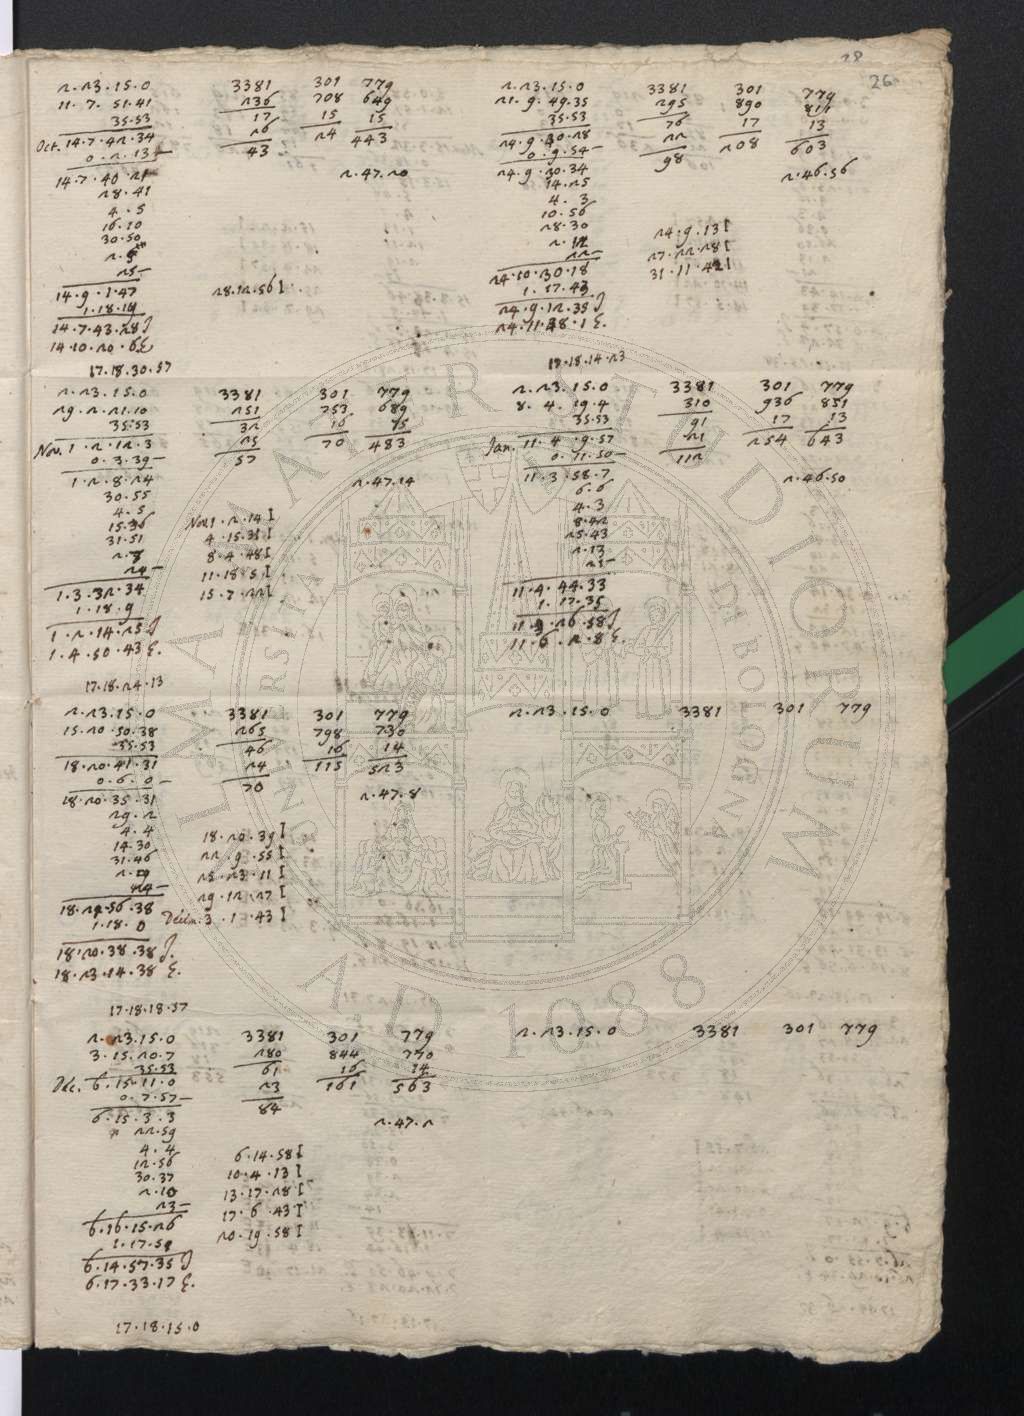 28
26
2.23.15.0 3381 301 779
11.7.51.41 236 708 649
35.53 17 15 15
Oct. 14.7.42.34 26 24 443
0.2.13— 43
14.7.40.21 2.47.20
28.41
4.5
16.10
30.50
2.5
25—
14.9.1.47 28.12.56 I
1.18.19
14.7.43.28 J
14.10.20.6 E
17.18.30.57
2.23.15.0 3381 301 779
21.9.49.35 295 890 811
35.53 76 17 13
24.9.40.28 22 208 603
0.9.54— 98
24.9.30.34 2.46.56
14.25
4.3
10.56
28.30 24.9.13 I
2.12 27.22.28 I
22— 31.11.42 I
24.10.30.18
1.17.43
24.9.12.35 J
24.11.48.1 E.
17.18.14.23
2.23.15.0 3381 301 779
29.2.21.10 251 753 689
35.53 32 16 15
Nov. 1.2.12.3 25 70 483
0.3.39— 57
1.2.8.24 2.47.14
30.55
4.5
15.36 Nov. 1.2.14 I
31.51 4.15.31 I
2.8 8.4.48 I
24— 11.18.5 I
1.3.32.34 15.7.22 I
1.18.9
1.2.14.25 J
1.4.50.43 E.
17.18.24.13
2.23.15.0 3381 301 779
8.4.19.4 310 936 851
35.53 91 17 13
Jan. 11.4.9.57 21 254 643
0.11.50— 112
11.3.58.7 2.46.50
6.6
4.3
8.42
25.43
2.13
21—
11.4.44.33
1.17.35
11.3.26.58 J
11.6.2.8 E.
2.23.15.0 3381 301 779
15.20.50.38 265 798 730
35.53 46 16 14
18.20.41.31 24 115 523
0.6.0— 70
18.20.35.31 2.47.8
29.2
4.4
14.30 18.20.39 I
31.46 22.9.55 I
2.9 25.23.11 I
24— 29.12.27 I
18.21.56.38 Decem. 3.1.43 I
1.18.0
18.20.38.38 J.
18.23.14.38 E.
17.18.18.37
2.23.15.0 3381 301 779
2.23.15.0 3381 301 779
3.15.20.7 280 844 770
35.53 61 16 14
Dec. 6.15.11.0 23 161 563
0.7.57— 84
6.15.3.3 2.47.2
22.59
4.4 6.14.58 I
12.56 10.4.13 I
30.37 13.17.28 I
2.10 17.6.43 I
23— 20.19.58 I
6.16.15.26
1.17.51
6.14.57.35 J
6.17.33.17 E.
17.18.15.0
2.23.15.0 3381 301 779
ALMA MATER STUDIORUM
A.D. 1088